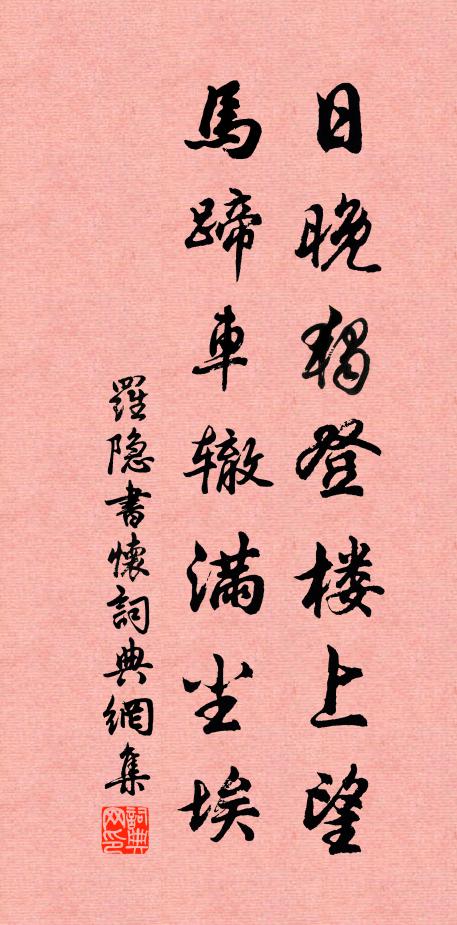 日晚独登楼上望
馬蹄車辙满尘埃
羅隐書懷詞典網集
詞典网印